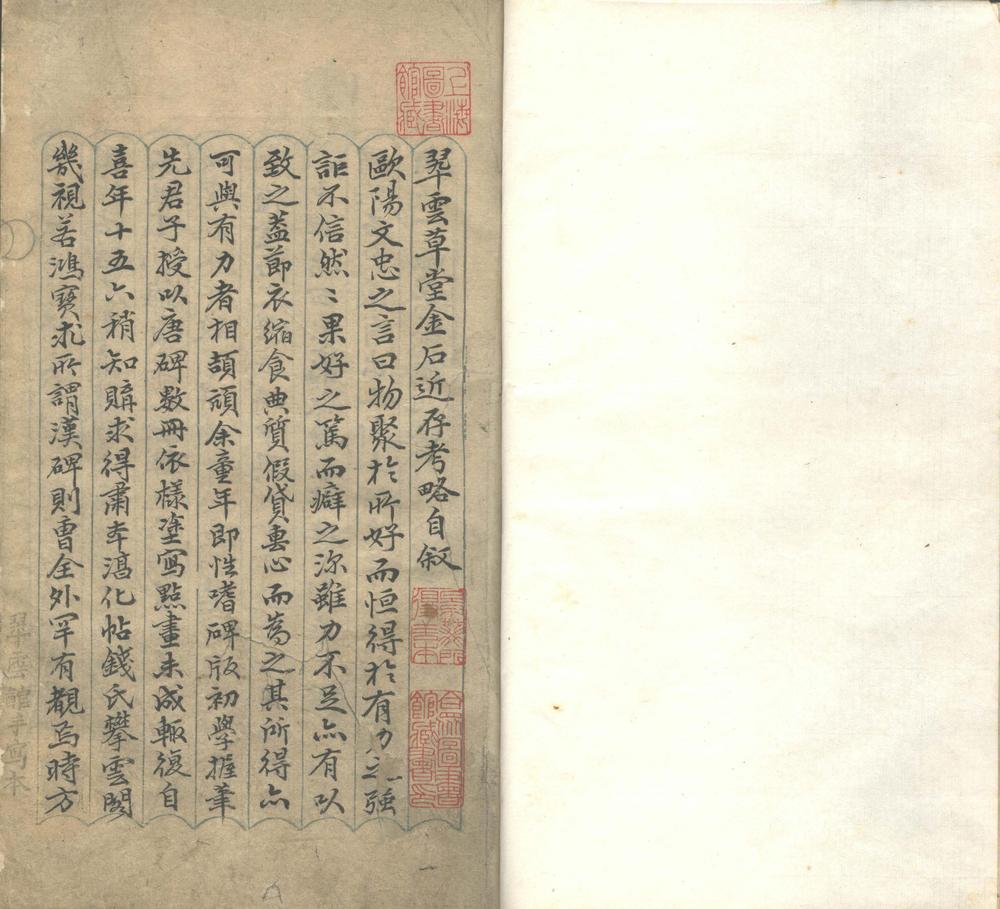 翠雲草堂金石近存考略自叙
歐陽文忠之言曰物聚於所好而恒得於有力之強
詎不信然〻果好之篤而癖之深雖力不足亦有以
致之蓋節衣縮食典質假貸專心而為之其所得亦
可與有力者相頡頏余童年即性嗜碑版初學握筆
先君子授以唐碑數冊依樣塗寫點畫未成輒復自
喜年十五六稍知購求得肅本淳化帖錢氏攀雲閣
幾視若鴻寶求所謂漢碑則曹全外罕有覩焉時方
上海圖書館藏
合眾圖書館藏書印